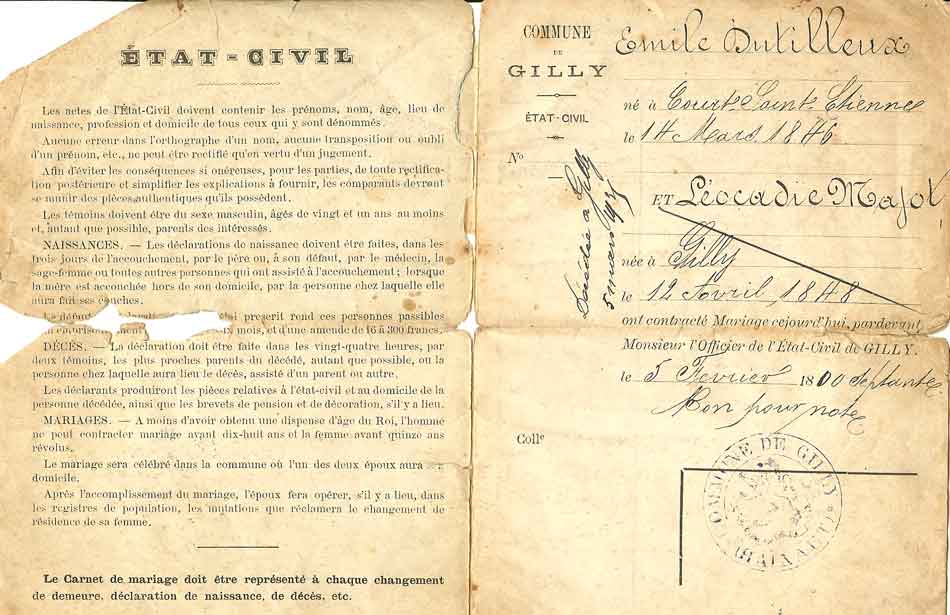 ÉTAT-CIVIL
Les actes de l'État-Civil doivent contenir les prénoms, nom, âge, lieu de
naissance, profession et domicile de tous ceux qui y sont dénommés.
Aucune erreur dans l'orthographe d'un nom, aucune transposition ou oubli
d'un prénom, etc., ne peut être rectifié qu'en vertu d'un jugement.
Afin d'éviter les conséquences si onéreuses, pour les parties, de toute rectification
postérieure et simplifier les explications à fournir, les comparants devront
se munir des pièces authentiques qu'ils possèdent.
Les témoins doivent être du sexe masculin, âgés de vingt et un ans au moins
et, autant que possible, parents des intéressés.
NAISSANCES. — Les déclarations de naissance doivent être faites, dans les
trois jours de l'accouchement, par le père ou, à son défaut, par le médecin, la
sage-femme ou toutes autres personnes qui ont assisté à l'accouchement ; lorsque
la mère est accouchée hors de son domicile, par la personne chez laquelle elle
aura fait ses couches.
Le défaut prescrit rend ces personnes passibles
mois, et d'une amende de 16 à 300 francs.
DÉCÈS. — La déclaration doit être faite dans les vingt-quatre heures, par
deux témoins, les plus proches parents du décédé, autant que possible, ou la
personne chez laquelle aura lieu le décès, assisté d'un parent ou autre.
Les déclarants produiront les pièces relatives à l'état-civil et au domicile de la
personne décédée, ainsi que les brevets de pension et de décoration, s'il y a lieu.
MARIAGES. — A moins d'avoir obtenu une dispense d'âge du Roi, l'homme
ne peut contracter mariage avant dix-huit ans et la femme avant quinze ans
révolus.
Le mariage sera célébré dans la commune où l'un des deux époux aura
domicile.
Après l'accomplissement du mariage, l'époux fera opérer, s'il y a lieu, dans
les registres de population, les mutations que réclamera le changement de
résidence de sa femme.
Le Carnet de mariage doit être représenté à chaque changement
de demeure, déclaration de naissance, de décès, etc.
COMMUNE
DE
GILLY
ÉTAT-CIVIL
No
Décédée à Gilly
5 mars
Emile Dutilleux
né à Court-Saint-Etienne
le 14 Mars 1846
ET Léocadie Majot
née à Gilly
le 12 Avril 1848
ont contracté Mariage cejourd'hui, pardevant
Monsieur l'Officier de l'État-Civil de GILLY.
le 5 Février 1800 septante
Bon pour note
Colle
COMMUNE DE GILLY
(HAINAUT)